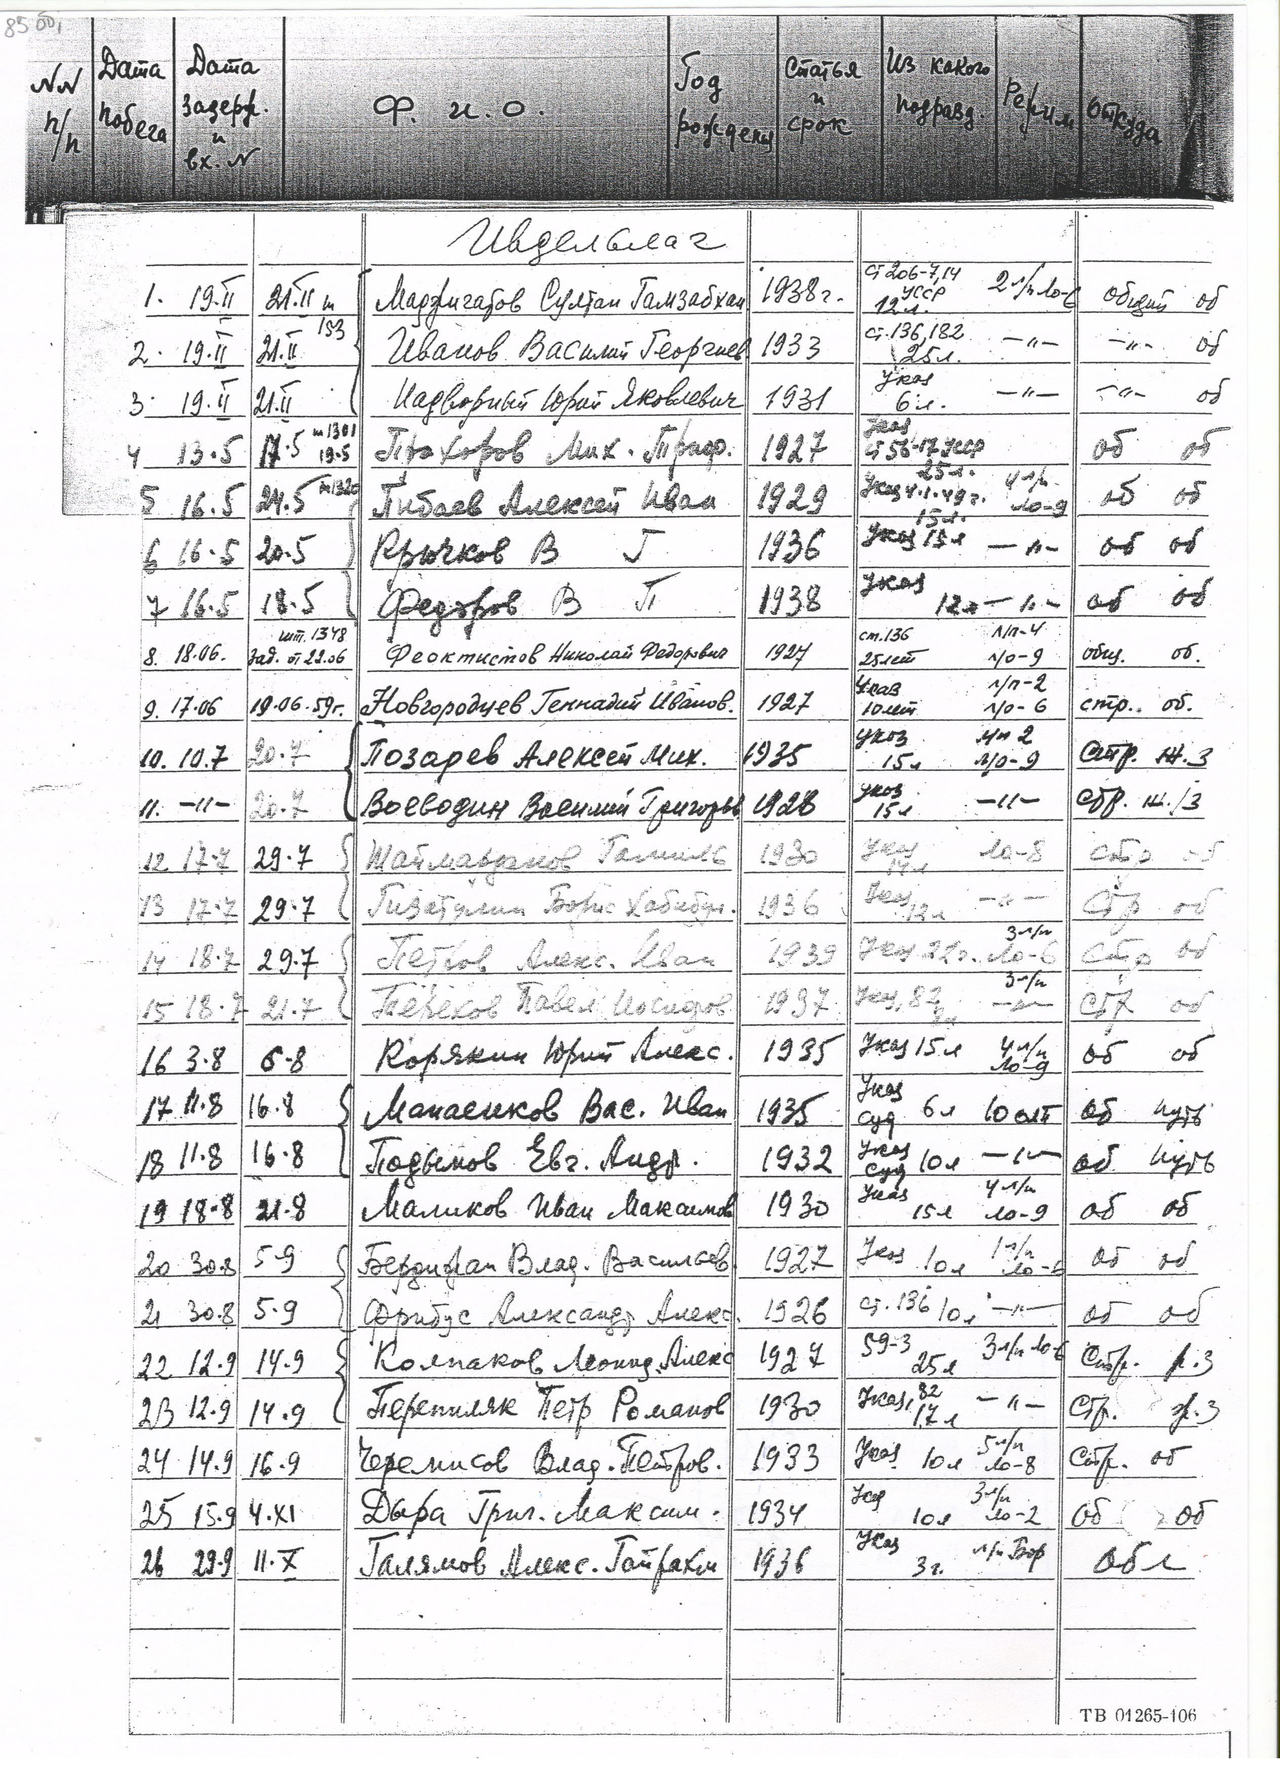 85 об,
NN п/п Дата побега Дата задерж. и вх. N Ф. и. о. Год рождения Статья и срок Из какого подразд. Режим Откуда
Ивдельлаг
1. 19.II 21.II т 153 Маджигатов Султан Гамзабхан 1938г. ст 206-7,14 УССР 12 л. 2 л/п ло-6 общий об
2. 19.II 21.II Иванов Василий Георгиев 1933 ст. 136, 182 25л. —"— —"— об
3. 19.II 21.II Надворный Юрий Яковлевич 1931 Указ 6 л. —"— —"— об
4 13.5 17.5 т1301 19.5 Прохоров Мих. Троф. 1927 Указ ст 56-17 УССР 25л. об об
5 16.5 24.5 т1320 Пибаев Алексей Иван 1929 Указ 4.1.49г. 15л. 4 л/п ло-9 об об
6 16.5 20.5 Крючков В Г 1936 Указ 15л —"— об об
7 16.5 18.5 Федоров В П 1938 Указ 12л —"— об об
8. 18.06. шт. 1348 зад. от 22.06 Феоктистов Николай Федорович 1927 ст. 136 25лет л/п-4 л/о-9 общ. об.
9. 17.06 19.06.59г. Новгородцев Геннадий Иванов. 1927 Указ 10лет л/п-2 л/о-6 стр.. об.
10. 10.7 20.7 Позарев Алексей Мих. 1935 Указ 15л л/п 2 л/о-9 Стр. ж.з
11. —"— 20.7 Воеводин Василий Григорьев 1928 Указ 15л —"— Стр. ж./з
12 17.7 29.7 Шаймарданов Гамиль 1930 Указ 14л ло-8 Стр об
13 17.7 29.7 Гизатулин Борис Хабибул. 1936 Указ 12л —"— Стр об
14 18.7 29.7 Петров Алекс. Иван 1939 Указ 22г. 3 л/п ло-6 Стр об
15 18.7 21.7 Терехов Павел 1937 Указ, 82 3 л/п —"— Стр об
16 3.8 6.8 Корякин Юрий Алекс. 1935 Указ 15л 4 л/п ло-9 об об
17 11.8 16.8 Манаенков Вас. Иван 1935 Указ суд 6л 10 олп об путь
18 11.8 16.8 Подымов Евг. Андр. 1932 Указ суд 10л —"— об путь
19 18.8 21.8 Маликов Иван Максимов 1930 Указ 15л 4 л/п ло-9 об об
20 30.8 5.9 Влад. Васильев. 1927 Указ 10л 1 л/п ло-6 об об
21 30.8 5.9 Фрибус Александр Алекс. 1926 ст. 136 10л —"— об об
22 12.9 14.9 Колпаков Леонид Алекс 1927 59-3 25л 3 л/п ло-6 Стр. р.з
23 12.9 14.9 Перепиляк Петр Романов 1930 Указ, 82 17л —"— Стр. р.з
24 14.9 16.9 Черемисов Влад. Петров. 1933 Указ 10л 5 л/п ло-8 Стр. об
25 15.9 4.XI Дыра Григ. Максим. 1934 Указ 10л 3 л/п ло-2 об об
26 29.9 11.X Галямов Алекс. Гайрахм 1936 Указ 3г. л/п Бор Обл
ТВ 01265-106